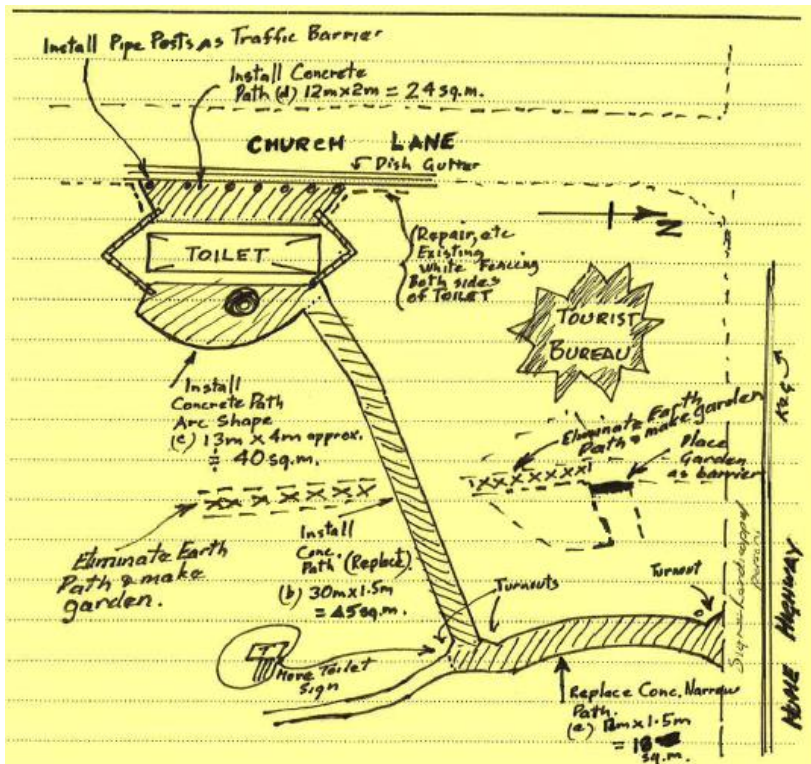 Install Pipe Posts As Traffic Barrier
Install Concrete
Path (d) 12m x 2m = 24 sq.m.
CHURCH LANE
Dish Gutter
TOILET
N
(Repair, etc
Existing
White Fencing
Both sides
of TOILET
TOURIST
BUREAU
Install
Concrete Path
Arc Shape
(c) 13m x 4m approx.
= 40 sq.m.
Eliminate Earth
Path & make garden
Place
Garden
as barrier
Eliminate Earth
Path & make
garden.
Install
Conc.
Path. (Replace).
(b) 30m x 1.5m
= 45 sq.m.
Turnouts
Turnout
Move Toilet
Sign
Replace Conc. Narrow
Path.
(a) 12m x 1.5m
= 18
sq.m.
HUME HIGHWAY